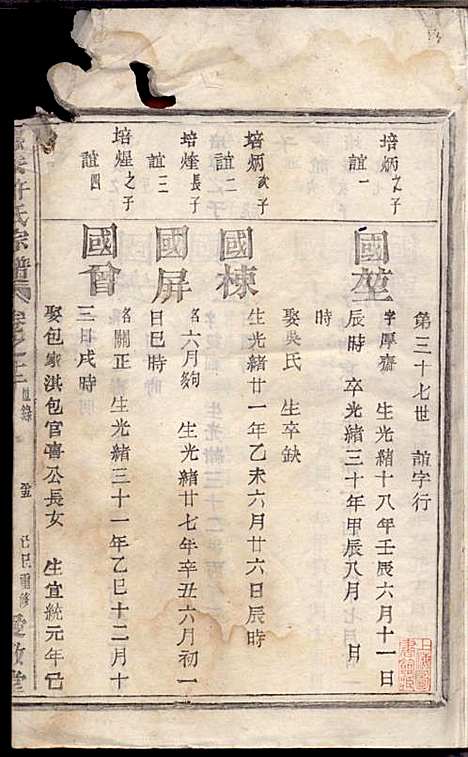 第三十七世　誼字行
培炳之子
誼一
國堃
字厚齋　生光緒十八年壬辰六月十一日
辰時　卒光緒三十年甲辰八月　七月　日
時
娶吳氏　生卒缺
培炳次子
誼二
國棟
生光緒廿一年乙未六月廿六日辰時
培煃長子
誼三
國屏
名六月夠　生光緒廿七年辛丑六月初一
日巳時
培煋之子
誼四
國會
名關正　生光緒三十一年乙巳十二月十
三日戌時
娶包家淇包官壽公長女　生宣統元年己
許氏宗譜
己巳重修
愛敬堂